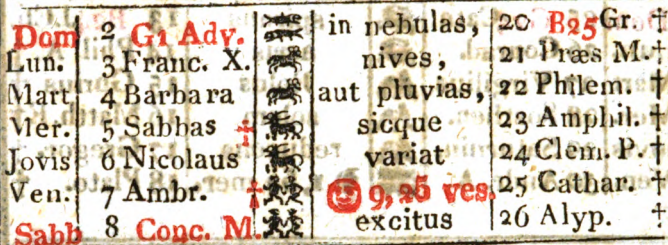 Dom 2 G1 Adv. in nebulas, 20 B25 Gr. †
Lun. 3 Franc. X. nives, 21 Præs M. †
Mart 4 Barbara aut pluvias, 22 Philem. †
Mer. 5 Sabbas † sicque 23 Amphil. †
Jovis 6 Nicolaus variat 24 Clem. P. †
Ven. 7 Ambr. † 9, 26 ves. 25 Cathar. †
Sabb 8 Conc. M. excitus 26 Alyp. †